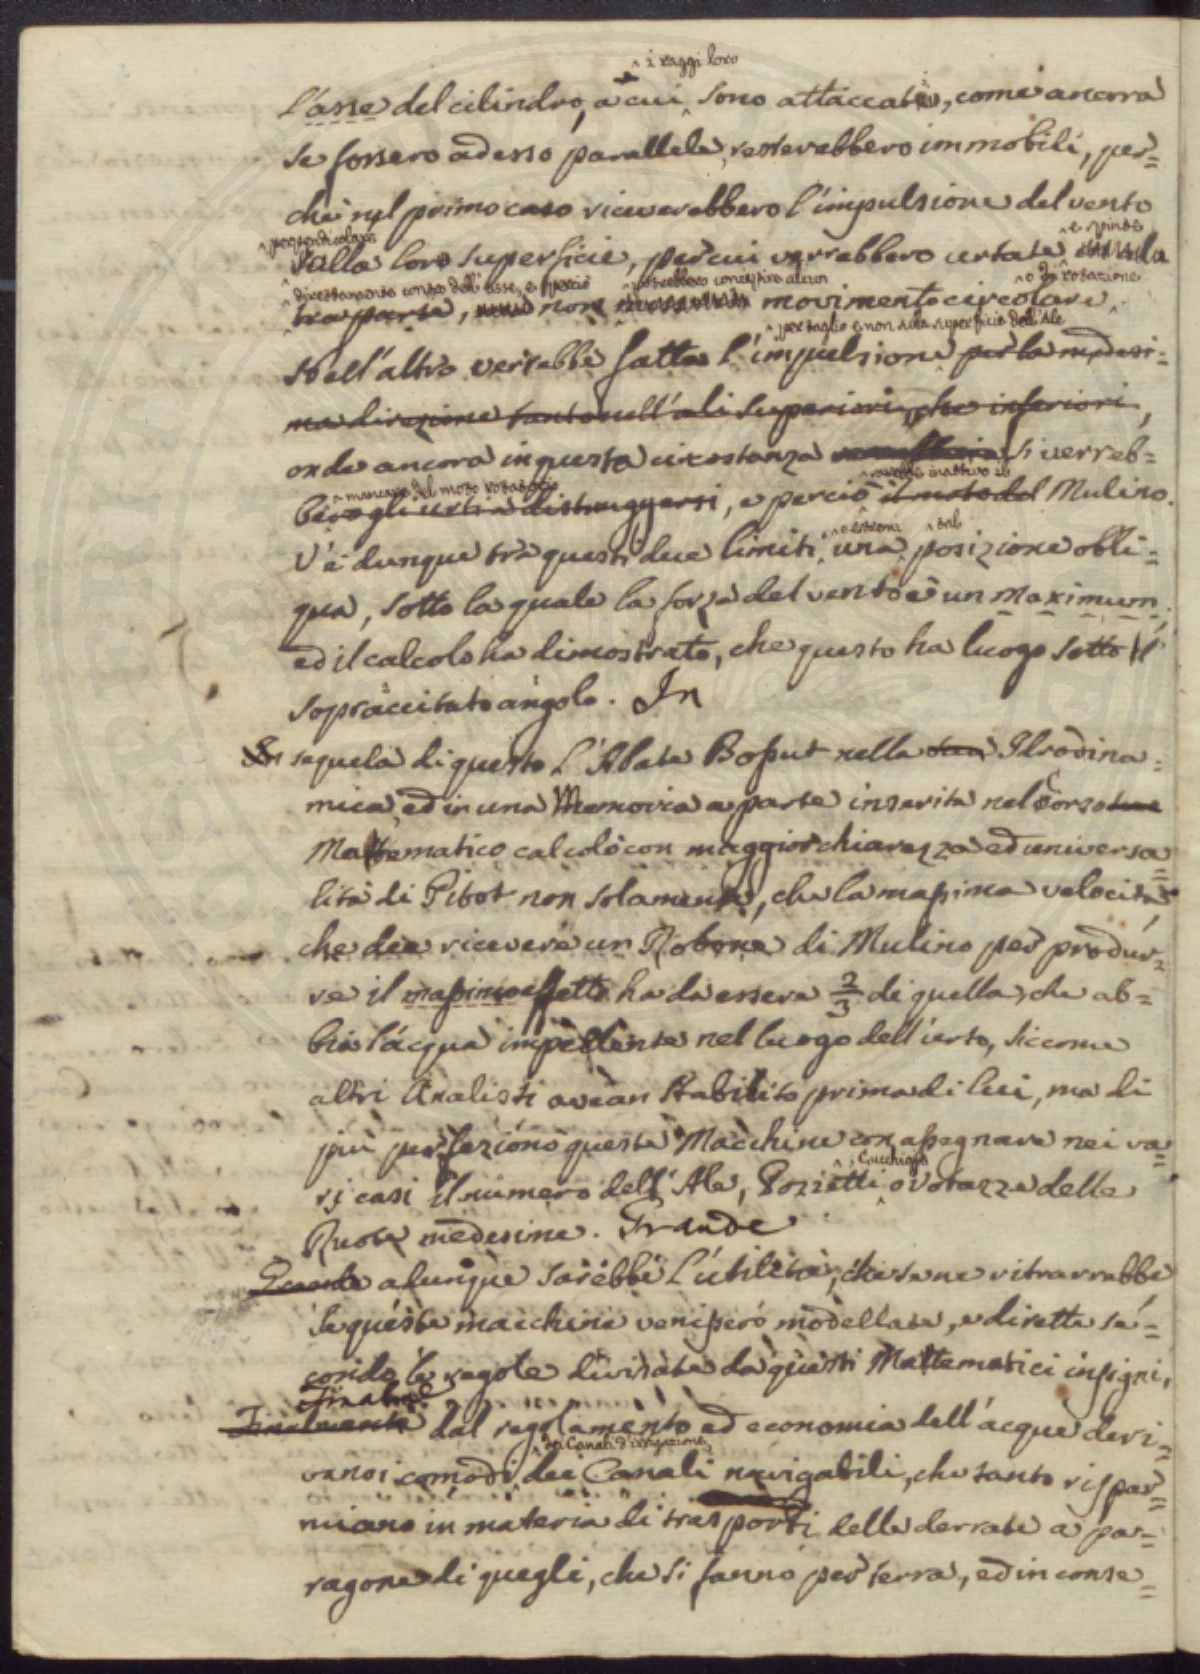 ^ i raggi loro
l'asse del cilindro, a cui, sono attaccati, come ancora
se fossero ad esso parallele, resterebbero immobili, per=
chè nel primo caso riceverebbero l'impulsione del vento
^ perpendicolare ^ e spinte
sulla loro superficie, per cui verrebbero urtate
^ direttamente contro dell'asse, e perciò ^ potrebbero concepire alcun ^ o di rotazione
tra parte, non movimento circolare.
^ per taglio e non sulla superficie dell'Ale
Nell'altro verrebbe fatta l'impulsione per la medesi=
ma direzione tanto nell'ali superiori, che inferiori,
onde ancora in questa circostanza si verreb=
^ mancare del moto rotatorio ^ sarebbe inattivo il
bero gli urti a distruggersi, e perciò il moto del Mulino.
^ o estremi ^ tal
V'è dunque trà questi due limiti una posizione obli=
qua, sotto la quale la forza del vento è un Maximum,
ed il calcolo ha dimostrato, che questo ha luogo sotto il
sopraccitato angolo. In
In sequela di questo l'Abate Bossut nella sua Idrodina=
mica, ed in una Memoria a parte inserita nel Corso
Mattematico calcolò con maggior chiarezza ed universa=
lità di Pitot non solamente, che la massima velocità,
che dee ricevere un Rotone di Mulino per produr=
re il massimo effetto ha da essere 2/3 di quella, che ab=
bia l'acqua impellente nel luogo dell'urto, siccome
altri Analisti avean stabilito prima di lui, ma di
più perfezionò queste Macchine con assegnare nei va=
^, Cucchiaje
rj casi il numero dell'Ale, Pozietti o votazze delle
Ruote medesime. Grande
Grande adunque sarebbe l'utilità, che se ne ritrarrebbe
se queste macchine venissero modellate, e dirette se=
condo le regole divisate da questi Mattematici insigni,
Finalmte
Finalmente dal regolamento ed economia dell'acque deri=
^ dei Canali d'irrigazione,
vanoi comodi dei Canali navigabili, che tanto rispar=
miano in materia di trasporti delle derrate a pa=
ragone di quegli, che si fanno per terra, ed in conse=